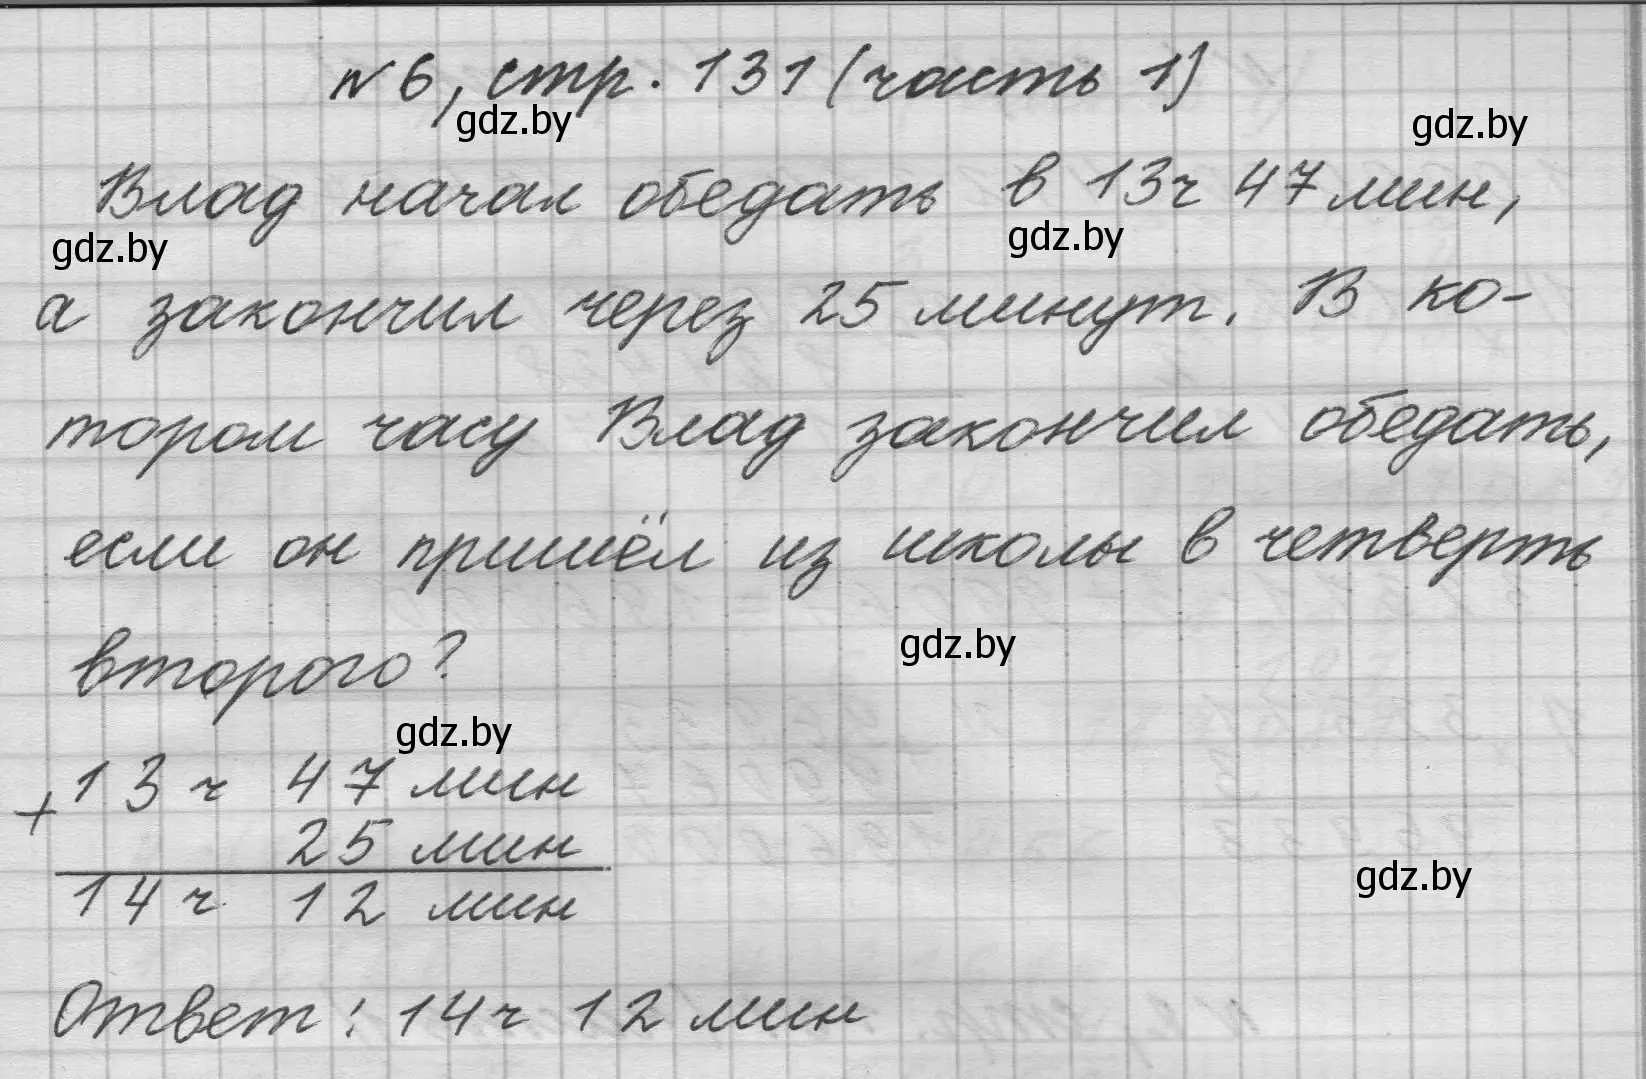 №6, стр. 131 (часть 1)
gdz.by
gdz.by
Влад начал обедать в 13ч 47мин,
gdz.by
gdz.by
а закончил через 25 минут. В ко-
тором часу Влад закончил обедать,
если он пришёл из школы в четверть
второго?
gdz.by
gdz.by
+ 13 ч 47 мин
25 мин
14 ч 12 мин
gdz.by
Ответ: 14ч 12 мин